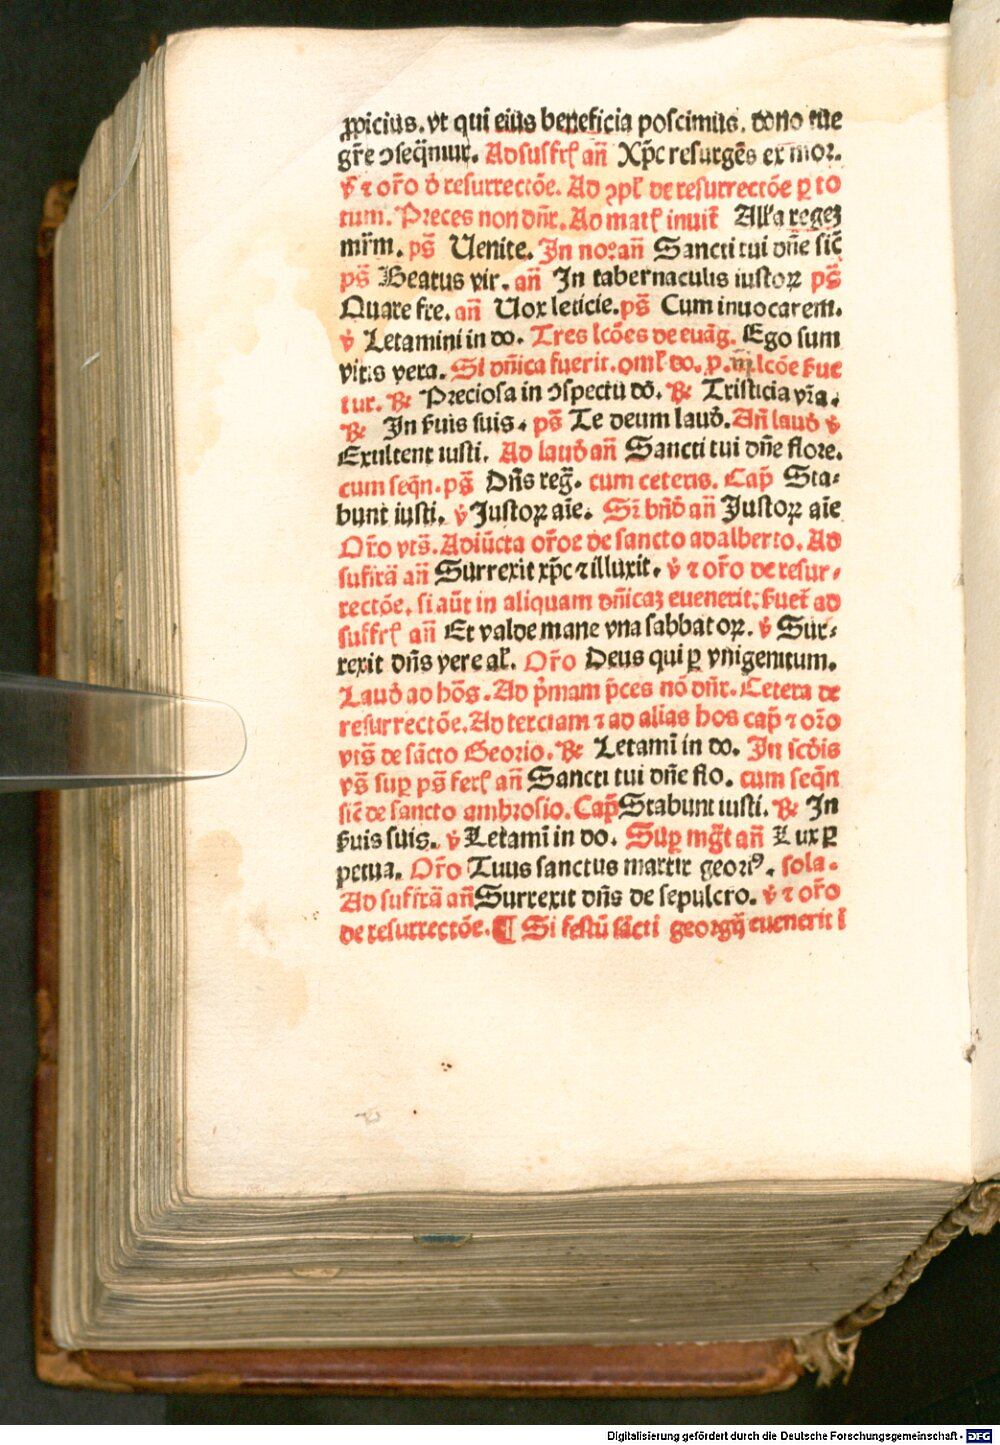 ꝓpicius. vt qui eius beneficia poscimus. dono tue
gr̄e ↄseq̄mur. Ad suffrꝭ an̄ Xp̄c resurgēs ex mor.
v̄ ⁊ or̄o d̄ resurrectōe. Ad ↄplꝭ de resurrectōe ꝑ to
tum. Preces non dn̄r. Ad matꝭ inuit̄ All'a regeꝫ
mr̄m. ps̄ Uenite. In no: an̄ Sancti tui dn̄e sic̄
ps̄ Beatus vir. an̄ In tabernaculis iustoꝝ ps̄
Quare fre. an̄ Uox leticie. ps̄ Cum inuocarem.
v̄ Letamini in do. Tres lcōes de euāg. Ego sum
vitis vera. Si dn̄ica fuerit. omꝭ do. ꝑ. iij. lcōe ẜue
tur. ℟ Preciosa in ↄspectu dō. ℟ Tristicia vr̄a.
℟ In ẜuis suis. ps̄ Te deum laud̄. An̄ laud̄ v̄
Exultent iusti. Ad laud̄ an̄ Sancti tui dn̄e flore.
cum seqn̄. ps̄ Dn̄s reḡ. cum ceteris. Cap̄ Sta-
bunt iusti. v̄ Iustoꝝ aīe. Sr̄ bn̄d̄ an̄ Iustoꝝ aīe
Or̄o vts̄. Adiūcta or̄oe de sancto adalberto. Ad
suffrā an̄ Surrexit xp̄c ⁊ illuxit. v̄ ⁊ or̄o de resur-
rectōe. si aūt in aliquam dn̄icaꝫ euenerit: ẜuet̄ ad
suffrꝭ an̄ Et valde mane vna sabbatoꝝ. v̄ Sur-
rexit dn̄s vere al'. Or̄o Deus qui ꝑ vnigenitum.
Laud̄ ad hōs. Ad p̄mam p̄ces nō dn̄r. Cetera de
resurrectōe. Ad terciam ⁊ ad alias hos cap̄ ⁊ or̄o
vts̄ de sācto Georio. ℟ Letamī in do. In scd̄is
vs̄ suꝑ ps̄ ferꝭ an̄ Sancti tui dn̄e flo. cum seqn̄
sic̄ de sancto ambrosio. Cap̄ Stabunt iusti. ℟ In
ẜuis suis. v̄ Letamī in do. Suꝑ mḡt an̄ Lux ꝑ
petua. Or̄o Tuus sanctus martir georiꝰ. sola.
Ad suffrā an̄ Surrexit dn̄s de sepulcro. v̄ ⁊ or̄o
de resurrectōe. ¶ Si festū sācti georgij euenerit ī
Digitalisierung gefördert durch die Deutsche Forschungsgemeinschaft - DFG